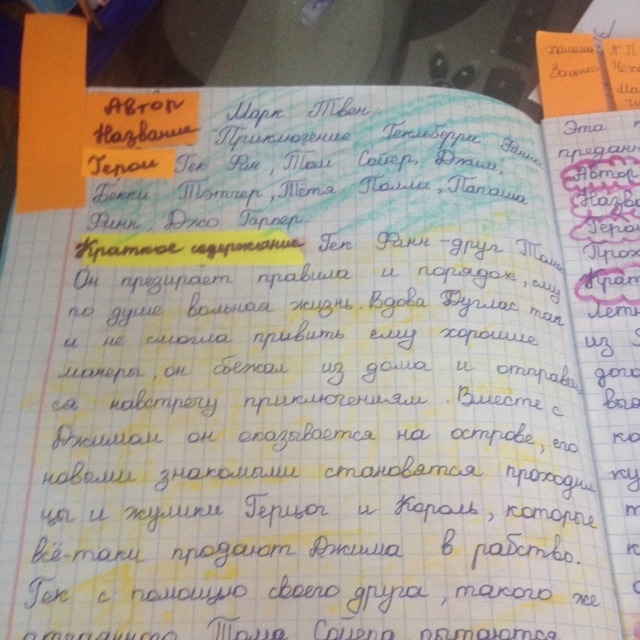 Автор Марк Твен
Название Приключение Гекльберри Финна
Герои Гек Фин, Том Сойер, Джим,
Бекки Тэтчер, Тётя Полли, Папаша
Финн, Джо Гарпер.
Краткое содержание Гек Финн-друг Тома
Он презирает правила и порядок, ему
по душе вольная жизнь. Вдова Дуглас так
и не смогла привить ему хорошие
манеры, он бежал из дома и отправил
ся навстречу приключениям. Вместе с
Джимом он оказывается на острове, его
новыми знакомыми становятся проходим
цы и жулики Герцог и Король, которые
всё-таки продают Джима в рабство.
Гек с помощью своего друга, такого же
отчаянного Тома Сойера пытаются
Эта
предан
Автор
Назва
Геро
Крат
Летн
из